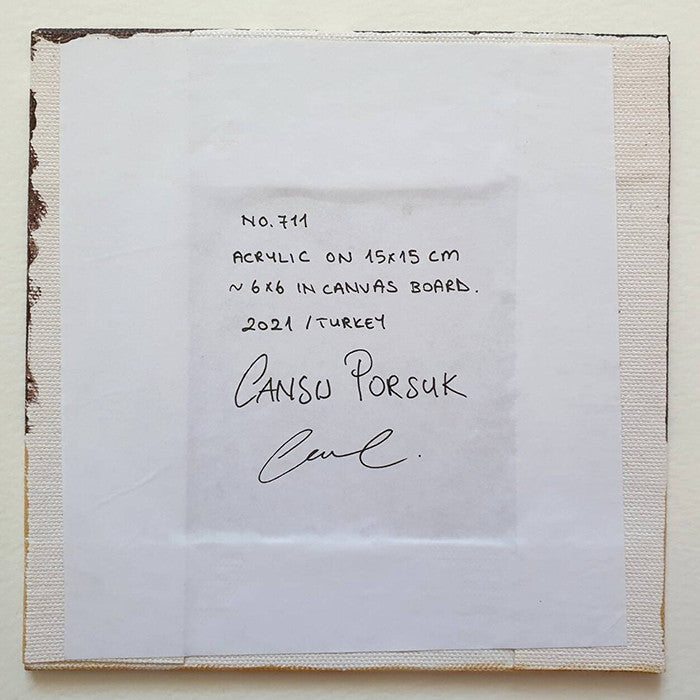 NO.711
ACRYLIC ON 15x15 CM
~ 6x6 IN CANVAS BOARD.
2021 / TURKEY
CANSU PORSUK